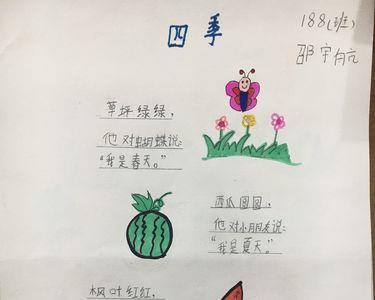 四季
188(班)
邵宇航
草坪绿绿,
他对蝴蝶说:
“我是春天。”
西瓜圆圆,
他对小朋友说:
“我是夏天。”
枫叶红红,